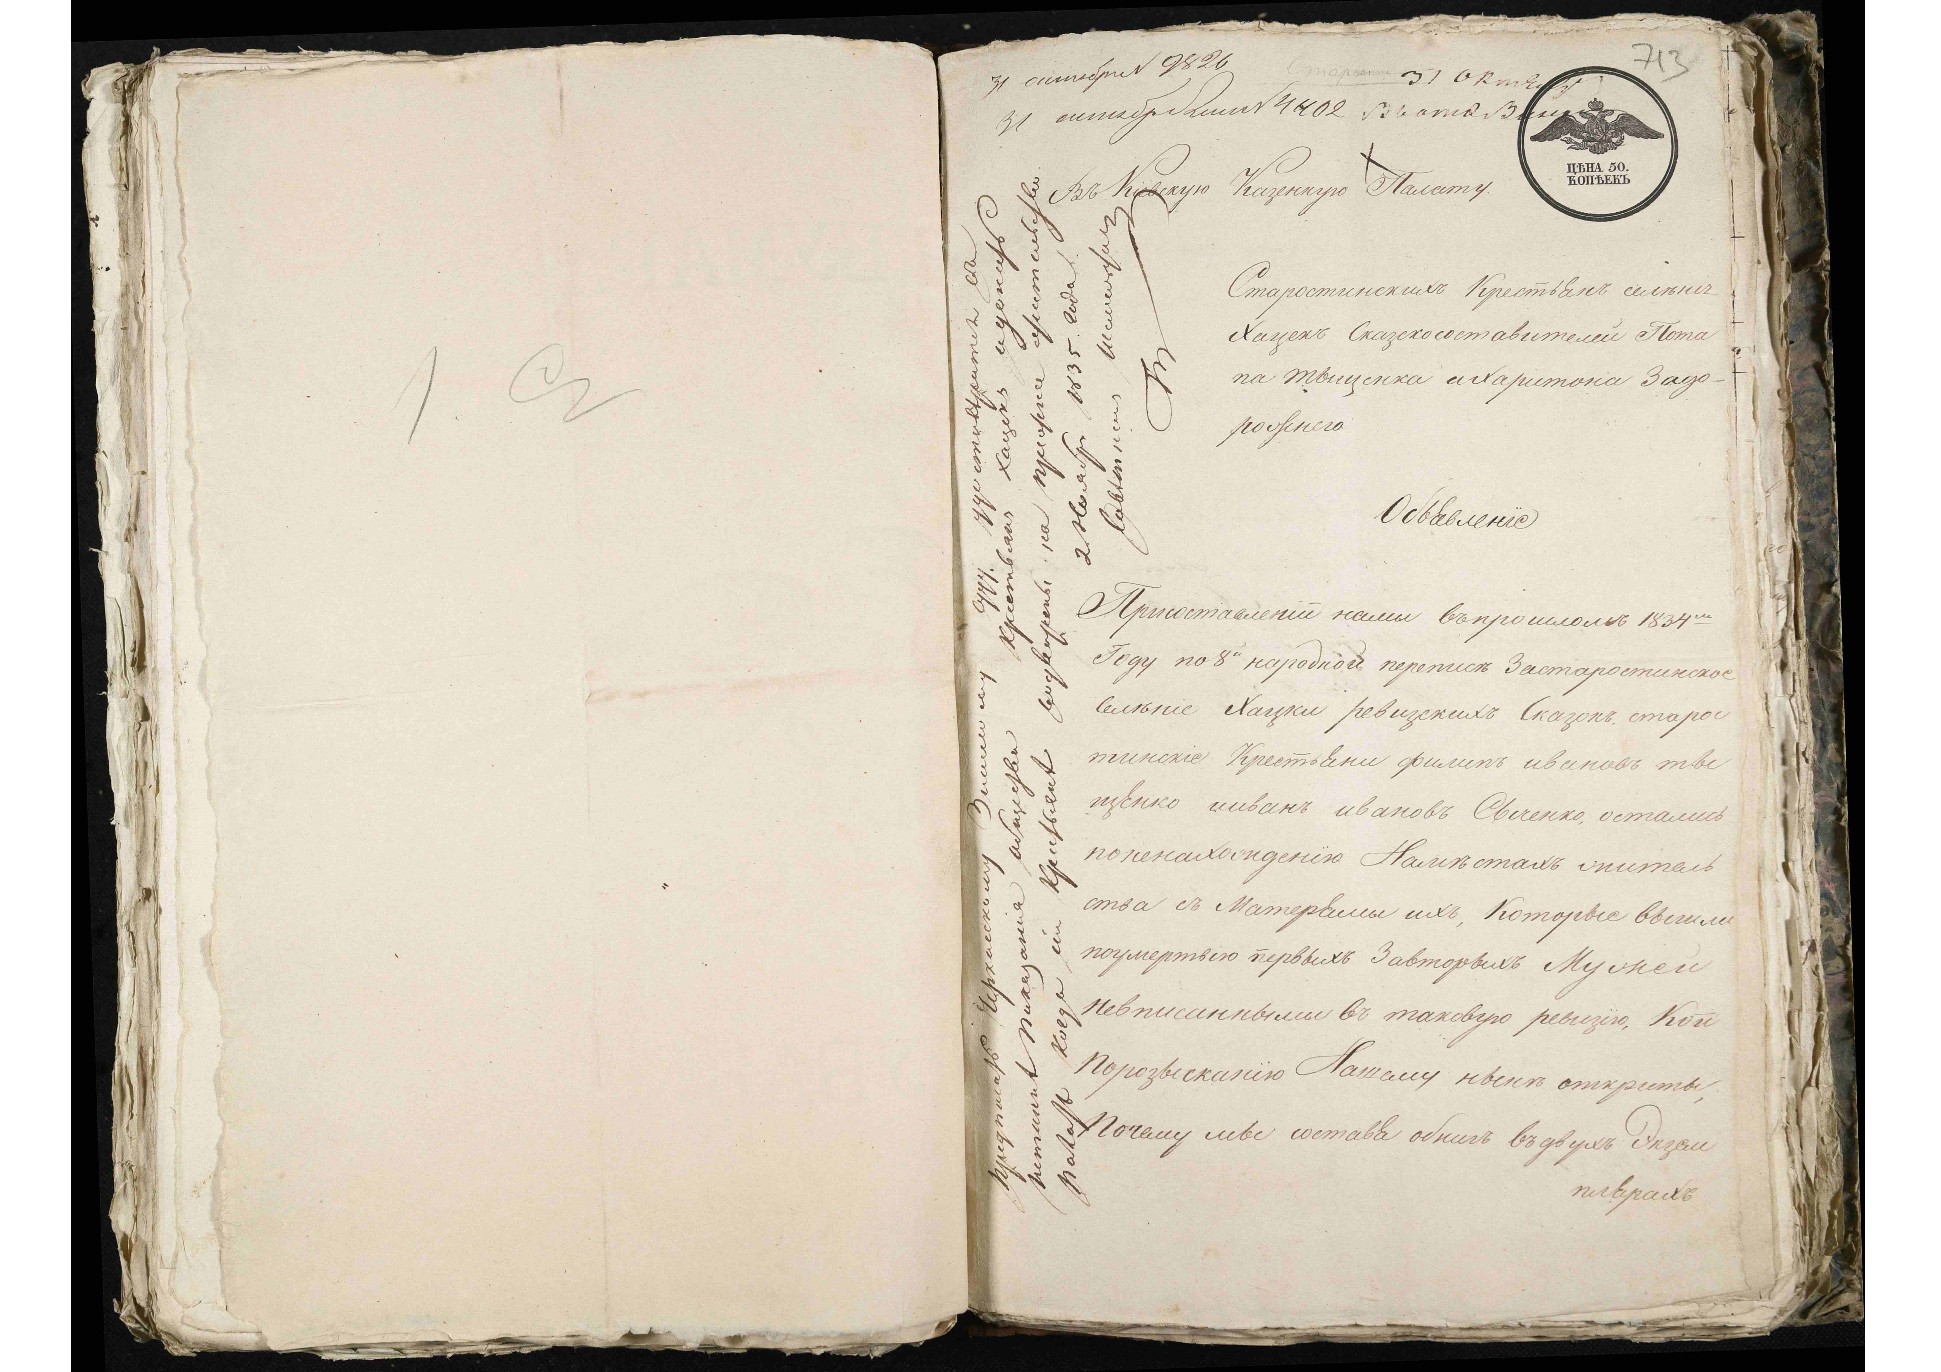 713
31 октября № 9826
31 октября 4402
31 Октября
ЦѢНА 50.
КОПѢЕКЪ
Въ Киевскую Казенную Палату.
Старостинскихъ Крестьянъ селѣнія
Хацекъ Сказкосоставителей Пота
па Тыщенка и Харитона Задо-
рожнего
Объявленіе
Присоставленіи нами въ прошломъ 1834мъ
Году по 8й народной переписѣ За старостинское
Селѣніе Хацки ревизскихъ Сказокъ, старос
тинскіе Крестьяни Филипъ Ивановъ Ты
щенко и Иванъ Ивановъ остались
по ненахождению На мѣстахъ житель
ства съ Матерями ихъ, Которые вышли
по умертвію первыхъ За вторыхъ Мужей
Невписанными въ таковую ревизію, Кои
По розысканію Нашему нынѣ открыты,
Почему мы составя обнихъ въ двухъ Экзем
плярахъ
Предписать Черкасскому Земскому Суду удостовѣрится
Крестьянъ Хацекъ
показания общества
когда сіи Крестьяне на прежнее жительство
2 Ноября 1835. года.
Совѣтникъ